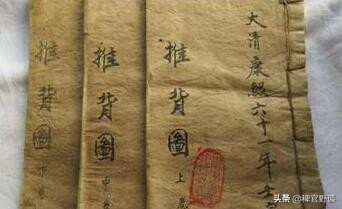 大清康熙六十一年
推背圖
上卷
推背圖
中卷
推背圖
头条 @稗官野陵